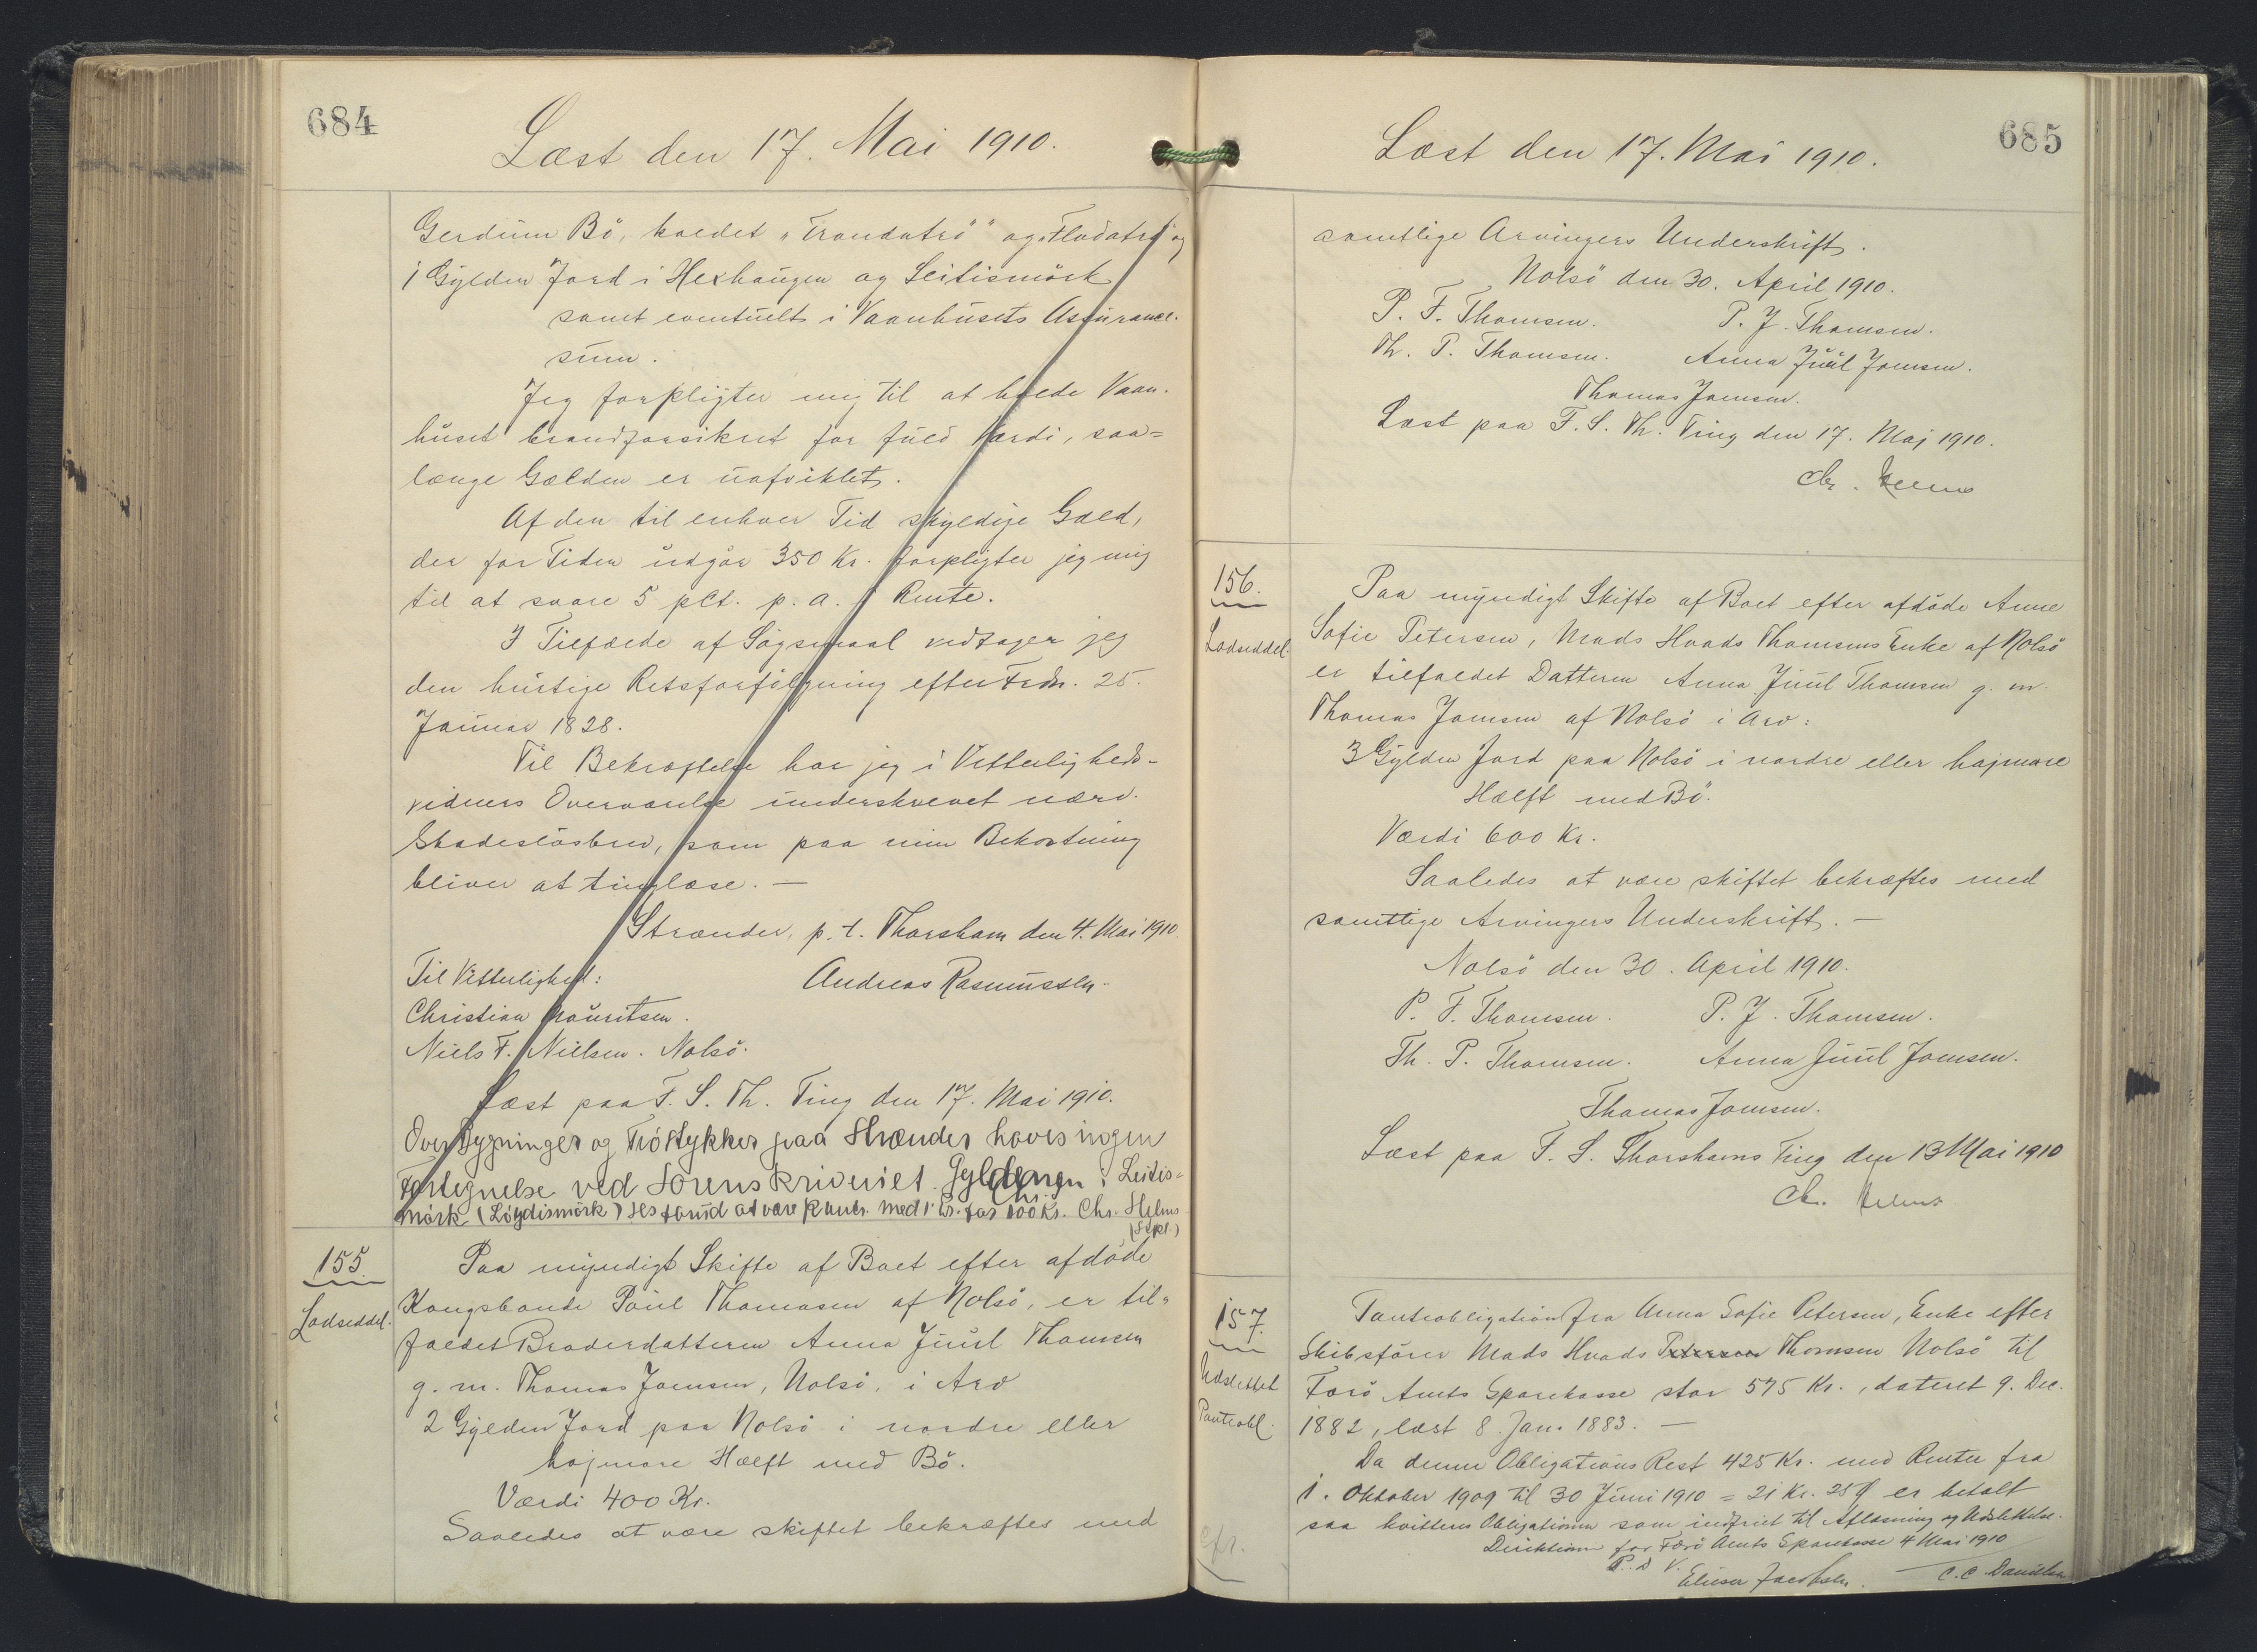 684
Læst den 17. Mai 1910.
Gerdum Bö, kaldet "Trondatrö" og "Fladatrö" og
1 Gylden Jord i Hexhaugen og Leitismörk
samt eventuelt i Vaanhusets Assurance-
sum.
Jeg forpligter mig til at holde Vaan-
huset brandforsikret for fuld Værdi, saa=
længe Gælden er uafviklet.
Af den til enhver Tid skyldige Gæld,
der for Tiden udgör 350 Kr. forpligter jeg mig
til at svare 5 pCt. p. a. i Rente.
I Tilfælde af Sögsmaal vedtager jeg
den hurtige Retsforfölgning efter Frdn. 25.
Januar 1828.
Til Bekræftelse har jeg i Vitterligheds-
vidners Overværelse underskrevet nærv.
Skadeslösbrev, som paa min Bekostning
bliver at tinglæse. —
Strænder, p. t. Thorshavn den 4. Mai 1910.
Til Vitterlighed: Andreas Rasmussen.
Christian Mouritsen.
Niels F. Nielsen. Nolsö.
Læst paa F. S. Th. Ting den 17. Mai 1910.
Over Bygninger og Tröstykker paa Strænder haves ingen
Fortegnelse ved Sorenskriveriet. Gyldenen i Leitis=
mörk (Lögdismörk) ses med 1. Pr. for Kr. Chr. Helms
155.
Lodseddel.
Paa myndigt Skifte af Boet efter afdöde
Kongsbonde Poul Thomasen af Nolsö, er til=
faldet Broderdatteren Anna Juul Thomsen
g. m. Thomas Joensen, Nolsö, i Arv
2 Gylden Jord paa Nolsö i nordre eller
höjmore Hælft med Bö.
Værdi 400 Kr.
Saaledes at være skiftet bekræftes med
685
Læst den 17. Mai 1910.
samtlige Arvingers Underskrift.
Nolsö den 30. April 1910.
P. F. Thomsen. P. J. Thomsen.
Th. P. Thomsen. Anna Juul Joensen.
Thomas Joensen.
Læst paa F. S. Th. Ting den 17. Maj 1910.
Chr. Helms
156.
Lodseddel.
Paa myndigt Skifte af Boet efter afdöde Anne
Sofie Petersen, Mads Hvads Thomsens Enke af Nolsö
er tilfaldet Datteren Anna Juul Thomsen g. m.
Thomas Joensen af Nolsö i Arv:
3 Gylden Jord paa Nolsö i nordre eller höjmore
Hælft med Bö.
Værdi 600 Kr.
Saaledes at være skiftet bekræftes med
samtlige Arvingers Underskrift. —
Nolsö den 30. April 1910.
P. F. Thomsen. P. J. Thomsen.
Th. P. Thomsen. Anna Juul Joensen.
Thomas Joensen.
Læst paa F. S. Thorshavns Ting den 13 Mai 1910
Chr. Helms
157.
Udslettet
Pantobl.
Cfr.
Panteobligation fra Anna Sofie Petersen, Enke efter
Skibsförer Mads Hvads Petersen Thomsen Nolsö til
Færö Amts Sparekasse stor 575 Kr., dateret 9. Dec.
1882, læst 8 Jan. 1883. —
Da denne Obligations Rest 425 Kr. med Renter fra
1. Oktober 1909 til 30 Juni 1910 = 21 Kr. 25 Ø er betalt
saa kvitteres Obligationen som indfriet til Aflæsning og Udslettelse.
Direktionen for Færö Amts Sparekasse 4 Mai 1910
P. D. V.
Elieser Jacobsen. C. C. Danielsen